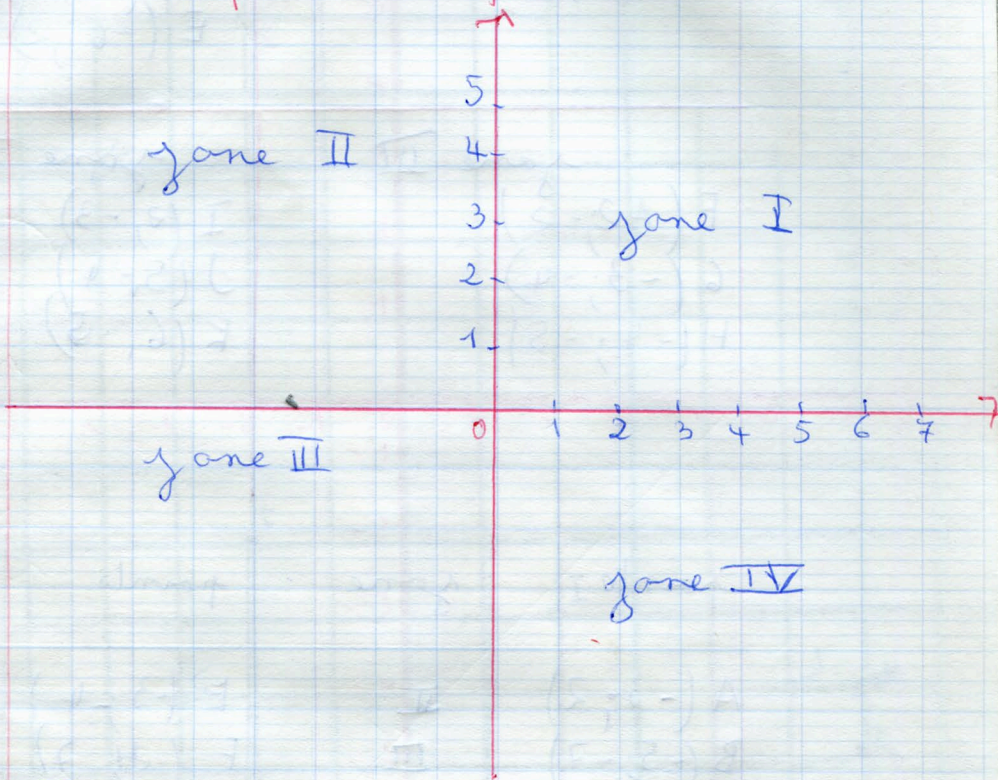 5
zone II 4
3 zone I
2
1
0 1 2 3 4 5 6 7
zone III
zone IV